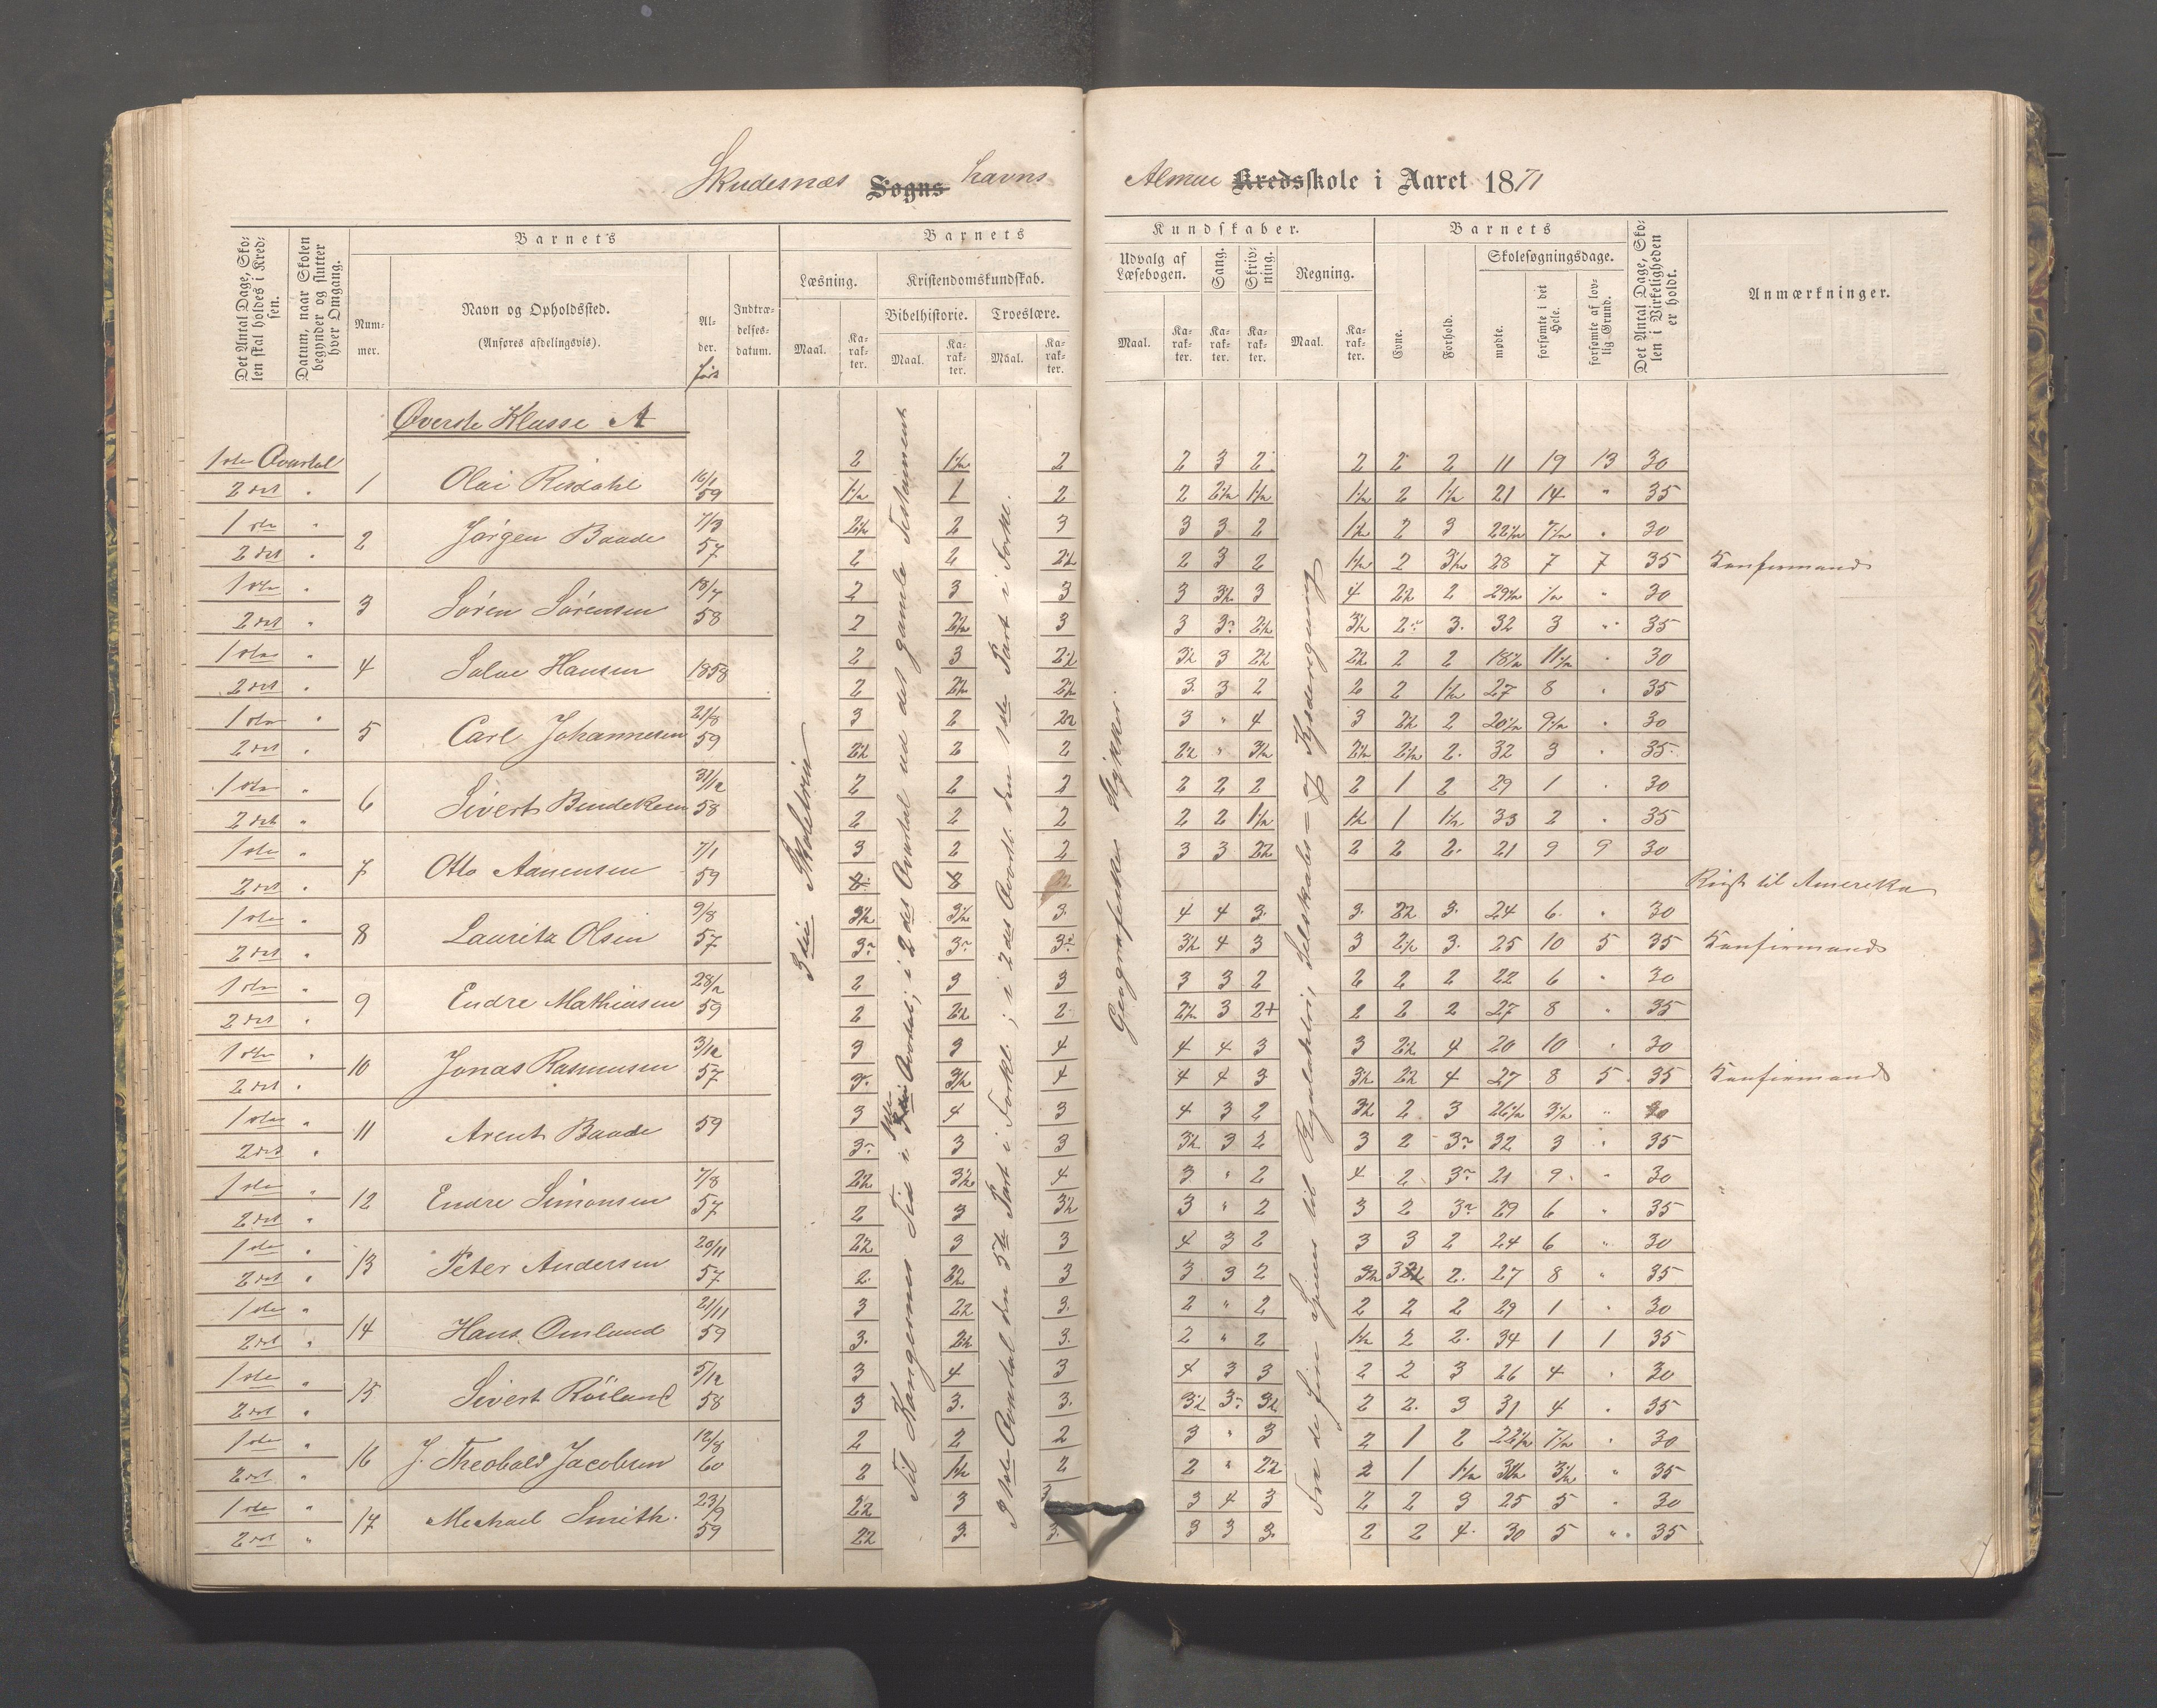 Skudesnæs Sogns havns
Almue Kredsskole i Aaret 1871
Det Antal Dage, Skolen skal holdes i Kredsen.
Datum, naar Skolen begynder og slutter hver Omgang.
Barnets
Nummer.
Navn og Opholdssted.
(Anføres afdelingsvis).
Alder.
Indtrædelsesdatum.
Barnets
Læsning.
Maal.
Karakter.
Kristendomskundskab.
Bibelhistorie.
Maal.
Karakter.
Troeslære.
Maal.
Karakter.
Kundskaber.
Udvalg af Læsebogen.
Maal.
Karakter.
Sang.
Karakter.
Skrivning.
Karakter.
Regning.
Maal.
Karakter.
Barnets
Evne.
Forhold.
Skolesøgningsdage.
mødte.
forsømte i det Hele.
forsømte af lovlig Grund.
Det Antal Dage, Skolen i Virkeligheden er holdt.
Anmærkninger.
Øverste Klasse A
1ste Qvartal 2 1½ 2 2 3 2 2 2 2 11 19 13 30
2det " 1 Olai Risdahl 16/1 59 1½ 1 2 2 2½ 1½ 1½ 2 1½ 21 14 " 35
1ste " 2½ 2 3 3 3 2 1½ 2 3 22½ 7½ " 30
2det " 2 Jørgen Baade 7/3 57 2 2 2½ 2 3 2 1½ 2 3½ 28 7 7 35 Konfirmand
1ste " 2 3 3 3 3½ 3 4 2½ 2 29½ ½ " 30
2det " 3 Søren Sørensen 18/7 58 2 2½ 3 3 3 2½ 3½ 2 3 32 3 " 35
1ste " 2 3 2½ 3½ 3 2½ 2½ 2 2 18½ 11½ " 30
2det " 4 Salve Hansen 1858 2 2½ 2½ 3 3 2 2 2 1½ 27 8 " 35
1ste " 3 2 2½ 3 " 4 3 2½ 2 20½ 9½ " 30
2det " 5 Carl Johannesen 21/8 59 2½ 2 2 2½ " 3½ 2½ 2½ 2 32 3 " 35
1ste " 2 2 2 2 2 2 2 1 2 29 1 " 30
2det " 6 Sivert Bendeksen 31/12 58 2 2 2 2 2 1½ 1½ 1 1½ 33 2 " 35
1ste " 3 2 2 3 3 2½ 2 2 2 21 9 9 30
2det " 7 Otto Aanensen 7/1 59 Reist til Amerika
1ste " 3½ 3½ 3 4 4 3 3 2½ 3 24 6 " 30
2det " 8 Lauritz Olsen 9/8 57 3 3 3 3½ 4 3 3 2½ 3 25 10 5 35 Konfirmand
1ste " 2 3 3 3 3 2 2 2 2 22 6 " 30
2det " 9 Endre Mathiasen 28/2 59 2 2½ 2 2½ 3 2+ 2 2 2 27 8 " 35
1ste " 3 3 4 4 4 3 3 2½ 4 20 10 " 30
2det " 10 Jonas Rasmussen 3/12 57 3 3½ 4 4 4 3 3½ 2½ 4 27 8 5 35 Konfirmand
1ste " 3 4 3 4 3 2 3½ 2 3 26½ 3½ " 30
2det " 11 Arent Baade 59 3 3 3 3½ 3 2 3 2 3 32 3 " 35
1ste " 2½ 3½ 4 3 " 2 4 2 3 21 9 " 30
2det " 12 Endre Simonsen 7/8 57 2 3 3½ 3 " 2 3 2 3 29 6 " 35
1ste " 2½ 3 3 4 3 2 3 3 2 24 6 " 30
2det " 13 Peter Andersen 20/11 57 2 2½ 3 3 3 2 3½ 3 2 27 8 " 35
1ste " 3 2½ 3 2 " 2 2 2 2 29 1 " 30
2det " 14 Hans Omland 21/11 59 3 2½ 3 2 " 2 1½ 2 2 34 1 1 35
1ste " 3 4 3 4 3 3 2 2 3 26 4 " 30
2det " 15 Sivert Røiland 5/12 58 3 3 3 3½ 3 3½ 2 2 3 31 4 " 35
1ste " 2 2 2 3 " 3 2 1 2 22½ 7½ " 30
2det " 16 J. Theobald Jacobsen 12/8 60 2 1½ 2 2 " 2½ 2 1 1½ 31½ 3½ " 35
1ste " 2½ 3 3 3 4 3 2 2 3 25 5 " 30
2det " 17 Michael Smith 23/9 59 2½ 3 3 3 3 3 2 2 4 30 5 " 35
3die Skoletrin
Til Kongernes Tid i 1ste Qvartal; i 2det Qvartal ud det gamle Testament
I 1ste Qvartal den 3die Part i Forkl.; i 2det Qvartl. den 1ste Part i Forkl.
Geografiske Stykker.
Fra de fire Species til Reguladetri, Selskabs- og Kjæderegning